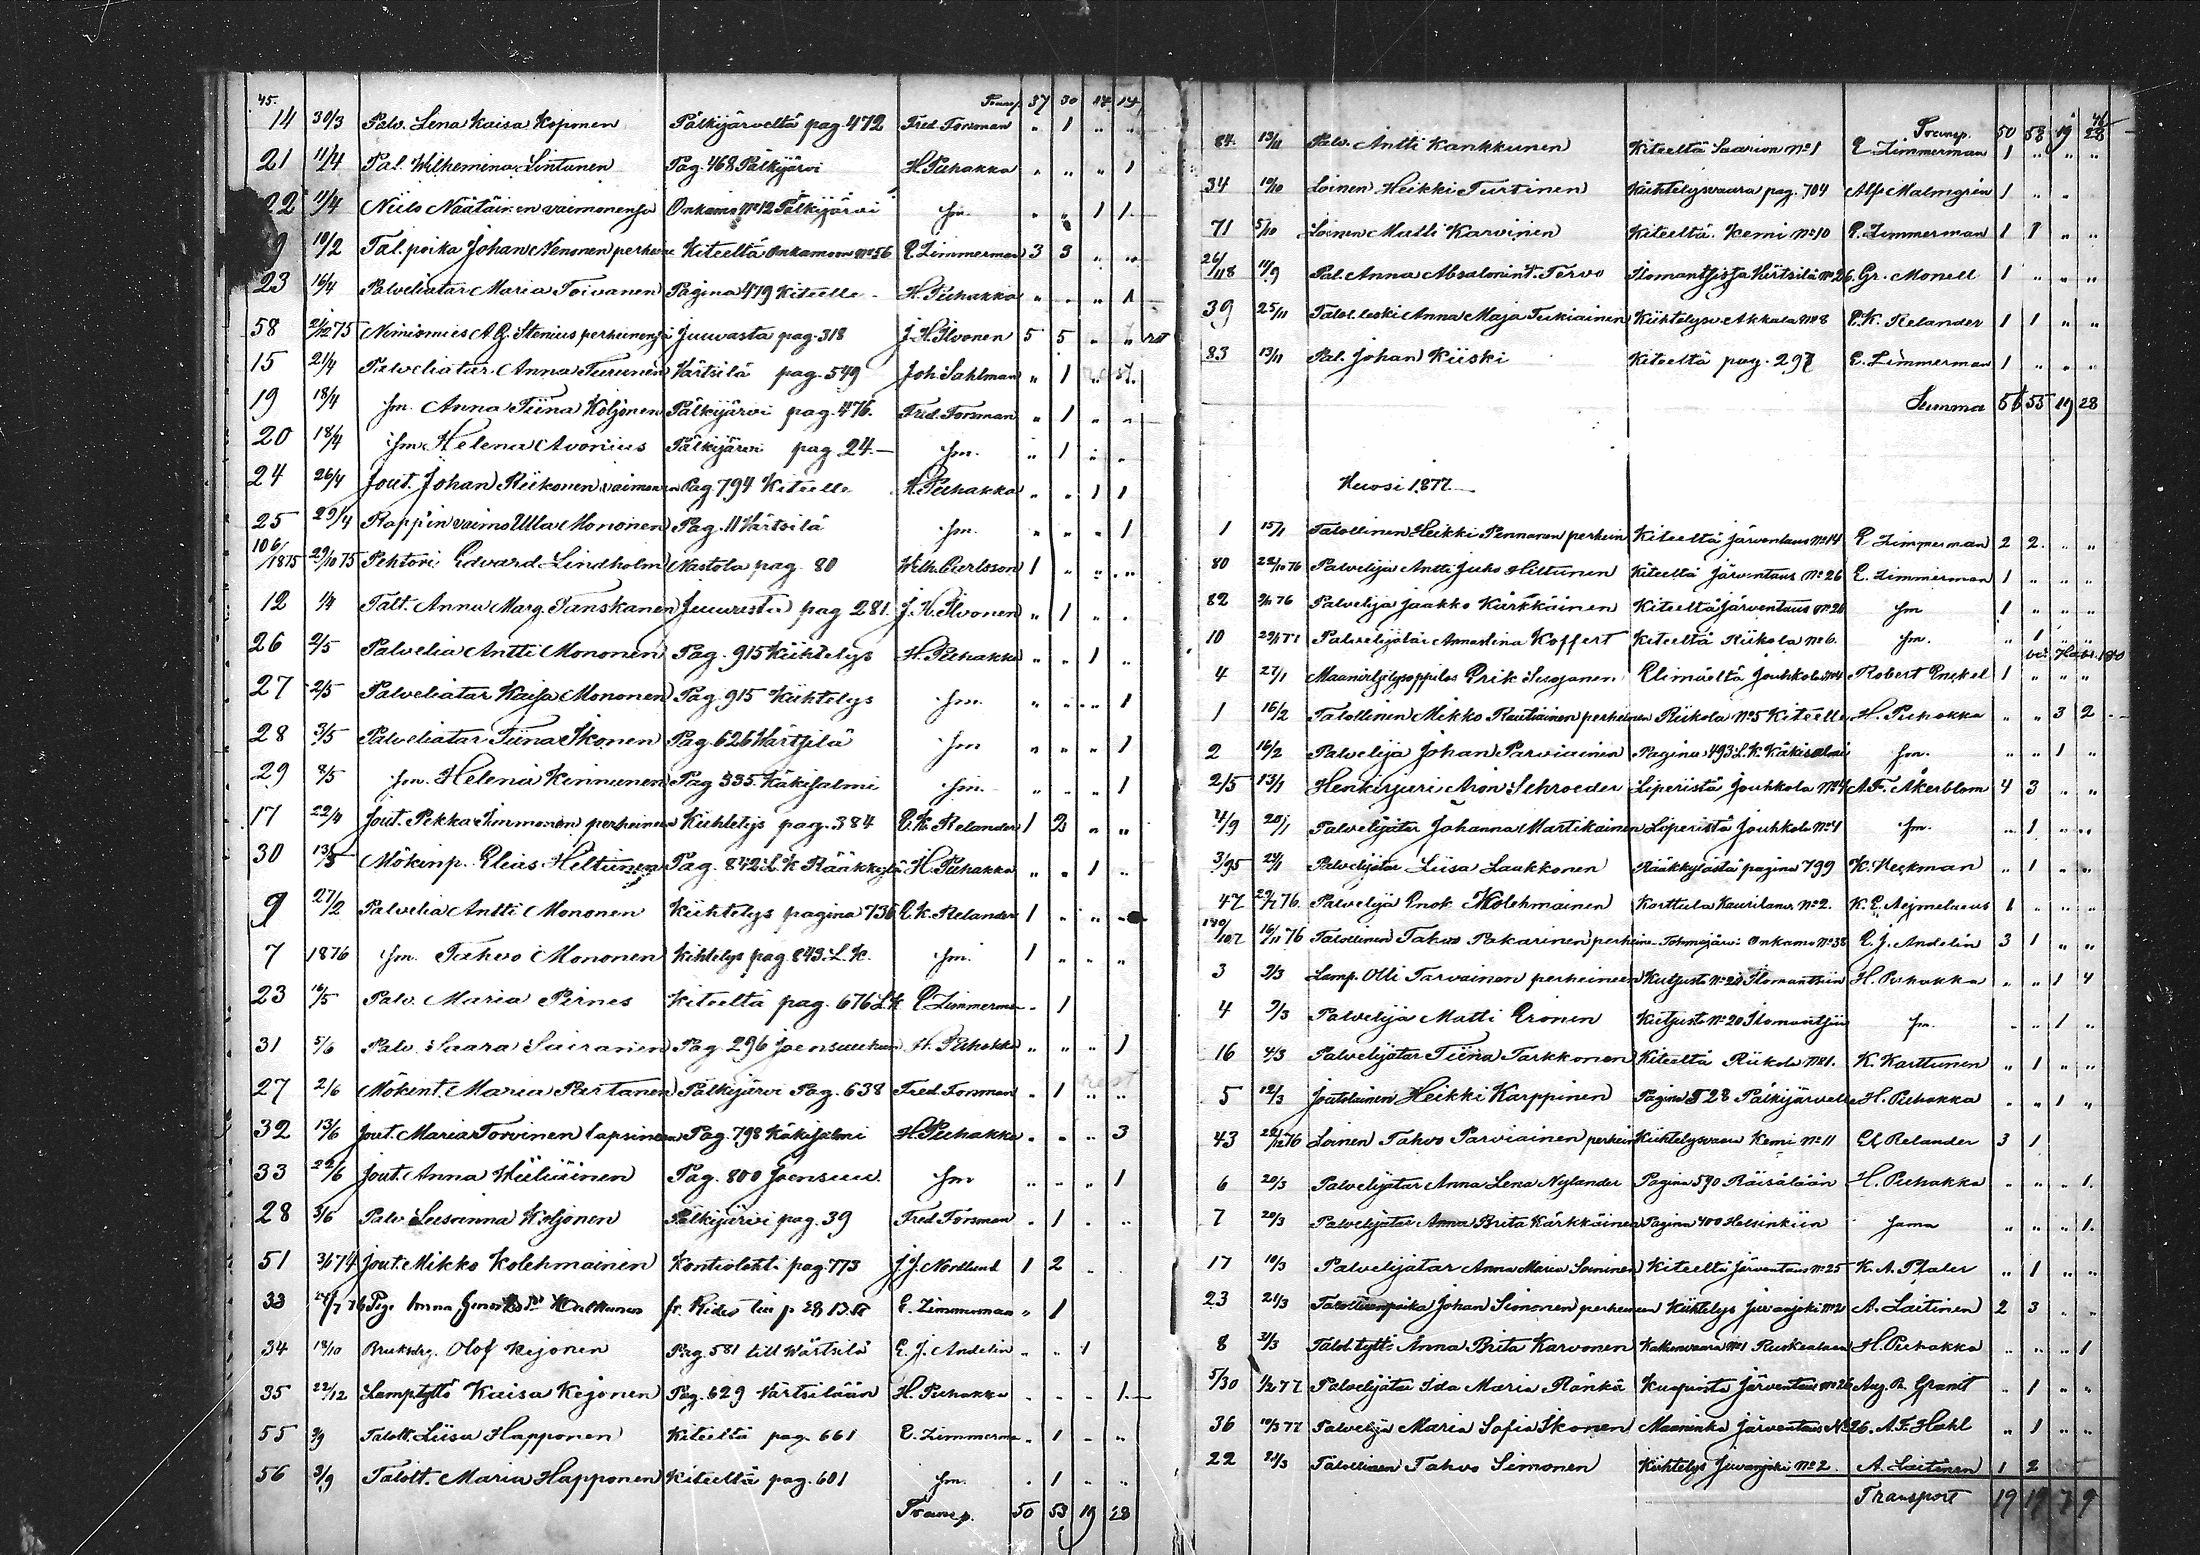 45.
Transp. 37 30 14 14
14 30/3 Palv. Lena Kaisa Koponen Pälkijärveltä pag. 472 Fred. Forsman „ 1 „ „
21 11/4 Pal. Wilhemina Lintunen Pag. 468 Pälkijärvi H. Piehakka „ „ „ 1
22 11/4 Niilo Näätäinen vaimonensa Onkamo No 12 Pälkijärvi Sm. „ „ 1 1
9 10/2 Tal. poika Johan Nenonen perheine Kiteeltä Onkamoon No 56 E Zimmerman 3 3 „ „
23 16/4 Palveliatar Maria Toivanen Pagina 479 Kiteelle H. Piehakka „ „ „ 1
58 75 Nimismies A. G. Stenius perheinensä Juuvasta pag. 318 J. H. Ilvonen 5 5 „ „
15 21/4 Palveliatar Anna Turunen Värtsilä pag. 549 Joh. Sahlman „ 1 „ „
19 18/4 Sm. Anna Tiina Koljonen Pälkijärvi pag. 476. Fred. Forsman „ 1 „ „
20 18/4 Sm. Helena Avonius Pälkijärvi pag. 24. Sm. „ 1 „ „
24 26/4 Jout. Johan Riikonen vaimonen Pag. 794 Kiteelle H. Piehakka „ „ 1 1
25 29/4 Rappin vaimo Ulla Mononen Pag. 11 Värtsilä Sm. „ „ „ 1
106/1875 29/10 75 Pehtori Edvard Lindholm Nastola pag. 80 Wilh. Carlsson 1 „ „ „
12 1/4 Talt. Anna Marg. Tanskanen Juuvasta pag 281. J. H. Ilvonen „ 1 „ „
26 2/5 Palvelia Antti Mononen Pag. 915 Kiihtelys H. Piehakka „ „ 1 „
27 2/5 Palveliatar Kaisa Mononen Pag. 915 Kiihtelys Sm. „ „ „ 1
28 3/5 Palveliatar Tiina Ikonen Pag. 626 Värtsilä Sm „ „ „ 1
29 8/5 Sm. Helena Kinnunen Pag 335 Käkisalmi Sm. „ „ „ 1
17 22/4 Jout. Pekka Immonen perheineen Kiihtelys pag. 384 E. K. Relander 1 2 „ „
30 13/5 Mökinp. Elias Heltunen Pag. 842 L.K Rääkkylä H. Piehakka „ „ 1 „
9 27/2 Palvelia Antti Mononen Kiihtelys pagina 736 E. K. Relander 1 „ „ „
7 1876 Sm. Tahvo Mononen Kihtelys pag 843. L.K. Sm. 1 „ „ „
23 16/5 Palv. Maria Pirnes Kiteeltä pag. 676 L.K E Zimmerma „ 1
31 5/6 Palv. Saara Sairanen Pag. 296 Joensuuhun H. Piehakka „ „ „ 1
27 2/6 Mökint. Maria Partanen Pälkijärvi Pag. 638 Fred. Forsman „ 1 „ „
32 13/6 Jout. Maria Torvinen lapsineen Pag. 798 Käkisalmi H. Piehakka „ „ „ 3
33 22/6 Jout. Anna Pag. 800 Joensuu Sm „ „ „ 1
28 3/6 Palv. Susanna Koljonen Pälkijärvi pag. 39 Fred Forsman „ 1 „ „
51 74 Jout. Mikko Kolehmainen Kontiolahti pag. 773 J. J. Nordlund 1 2 „
33 E. Zimmerman „ 1
34 18/10 Olof Kejonen Pag. 581 till Wärtsilä E. J. Andelin „ „ 1
35 22/12 Lamptyttö Kaisa Kejonen Pag. 629 Värtsilään H. Piehakka „ „ „ 1
55 3/9 Talolt. Liisa Happonen Kiteeltä pag. 661 E. Zimmerma „ 1 „ „
56 3/9 Talolt. Maria Happonen Kiteeltä pag. 601 Sm. „ 1 „ „
Transp. 50 53 19 28
46
Transp. 50 53 19 28
84. 13/11 Palv. Antti Kankkunen Kiteeltä Saarion No 1 E Zimmerman 1 „ „ „
34 10/10 Loinen Heikki Turtinen Kiihtelysvaara pag. 704 Alf. Malmgrén 1 „ „
71 5/10 Loinen Matti Karvinen Kiteeltä Kemi No 10 E. Zimmerman 1 1 „ „
26/118 11/9 Pal. Anna Absalonint. Tervo Ilomantsista Kiitsilä No 26. Gr. Monell 1 „ „ „
39 25/11 Talol. leski Anna Maja Tukiainen Kiihtelysv Akkala No 8 E. K. Relander 1 1 „ „
83 13/11 Pal. Johan Kiiski Kiteeltä pag. 297 E. Zimmerman 1 „ „ „
Summa 56 55 19 28
Vuosi 1877.
1 15/1 Talollinen Heikki Pennanen perhein Kiteeltä Järventaus No 14 E Zimmerman 2 2. „ „
80 76 Palvelija Antti Juho Hiltunen Kiteeltä Järventaus No 26 E. Zimmerman 1 „ „ „
82 76 Palvelija Jaakko Kärkkäinen Kiteeltä Järventaus No 26 Sm 1 „ „ „
10 Palvelijatar Annastina Koffert Kiteeltä Riikola No 6. Sm. „ 1
4 27/1 Maanviljelysoppilas Erik Suojanen Elimäeltä Jouhkola No 4 Robert Enckel 1 „ „ „
1 16/2 Talollinen Mikko Rautiainen perheinen Riikola No 5 Kiteelle H. Piehakka „ „ 3 2
2 16/2 Palvelija Johan Parviainen Pagina 493. L.K. Käkisalmi Sm. „ „ 1 „
2/5 13/1 Henkirjuri Aron Schroeder Liperistä Jouhkola No 4 A. F. Åkerblom 4 3 „ „
4/9 20/1 Palvelijatar Johanna Martikainen Liperistä Jouhkola No 1 Sm. „ 1 „ „
3/95 Palvelijatar Liisa Laukkonen Rääkkylästä pagina 799 K. Heckman „ 1 „ „
47 76. Palvelija Enok Kolehmainen Karttula Kaurilans No 2. K. E. Aejmelaeus 1 „ „ „
16/11 76 Talollinen Tahvo Pakarinen perheine Tohmajärvi Onkamo No 38 E. J. Andelin 3 1 „ „
3 3/3 Lamp. Olli Tarvainen perheineen Kutjusto No 20 Ilomantsiin H. Piehakka „ „ 1 4
4 3/3 Palvelija Matti Eronen Kutjusto No 20 Ilomantsiin Sm. „ „ 1 „
16 4/3 Palvelijatar Tiina Tarkkonen Kiteeltä Riikola No 1. K. Karttunen „ 1 „ „
5 12/3 Joutolainen Heikki Karppinen Pagina 528 Pälkijärvelle H. Piehakka „ „ 1 „
43 76 Loinen Tahvo Parviainen perhein Kiihtelysvaara Kemi No 11 Relander 3 1
6 20/3 Palvelijatar Anna Lena Nylander Pagina 590 Räisälään H. Piehakka „ „ „ 1.
7 20/3 Palvelijatar Anna Brita Kärkkäinen Pagina 400 Helsinkiin Sama „ „ „ 1.
17 10/3 Palvelijatar Anna Maria Soininen Kiteeltä Järventaus No 25 K. A. Pfaler „ 1 „ „
23 21/3 Talollisenpoika Johan Simonen perheineen Kiihtelys Juvanjoki No 2 A. Laitinen 2 3 „ „
8 31/3 Talol. tyttö Anna Brita Karvonen Kakunvaara No 1 Ruskealaan H. Piehakka „ „ „ 1
5/30 77 Palvelijatar Ida Maria Ränkä Kuopiosta Järventaus No 26 Aug. R. Granit „ 1 „ „
36 77 Palvelija Maria Sofia Ikonen Maaninka Järventaus No 26. A. F. Hahl „ 1 „ „
22 21/3 Talollinen Tahvo Simonen Kiihtelys Juvanjoki No 2. A. Laitinen 1 2
Transport 19 19 7 9